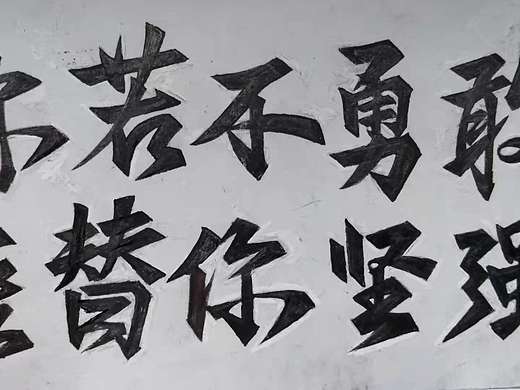 你若不勇敢
谁替你坚强